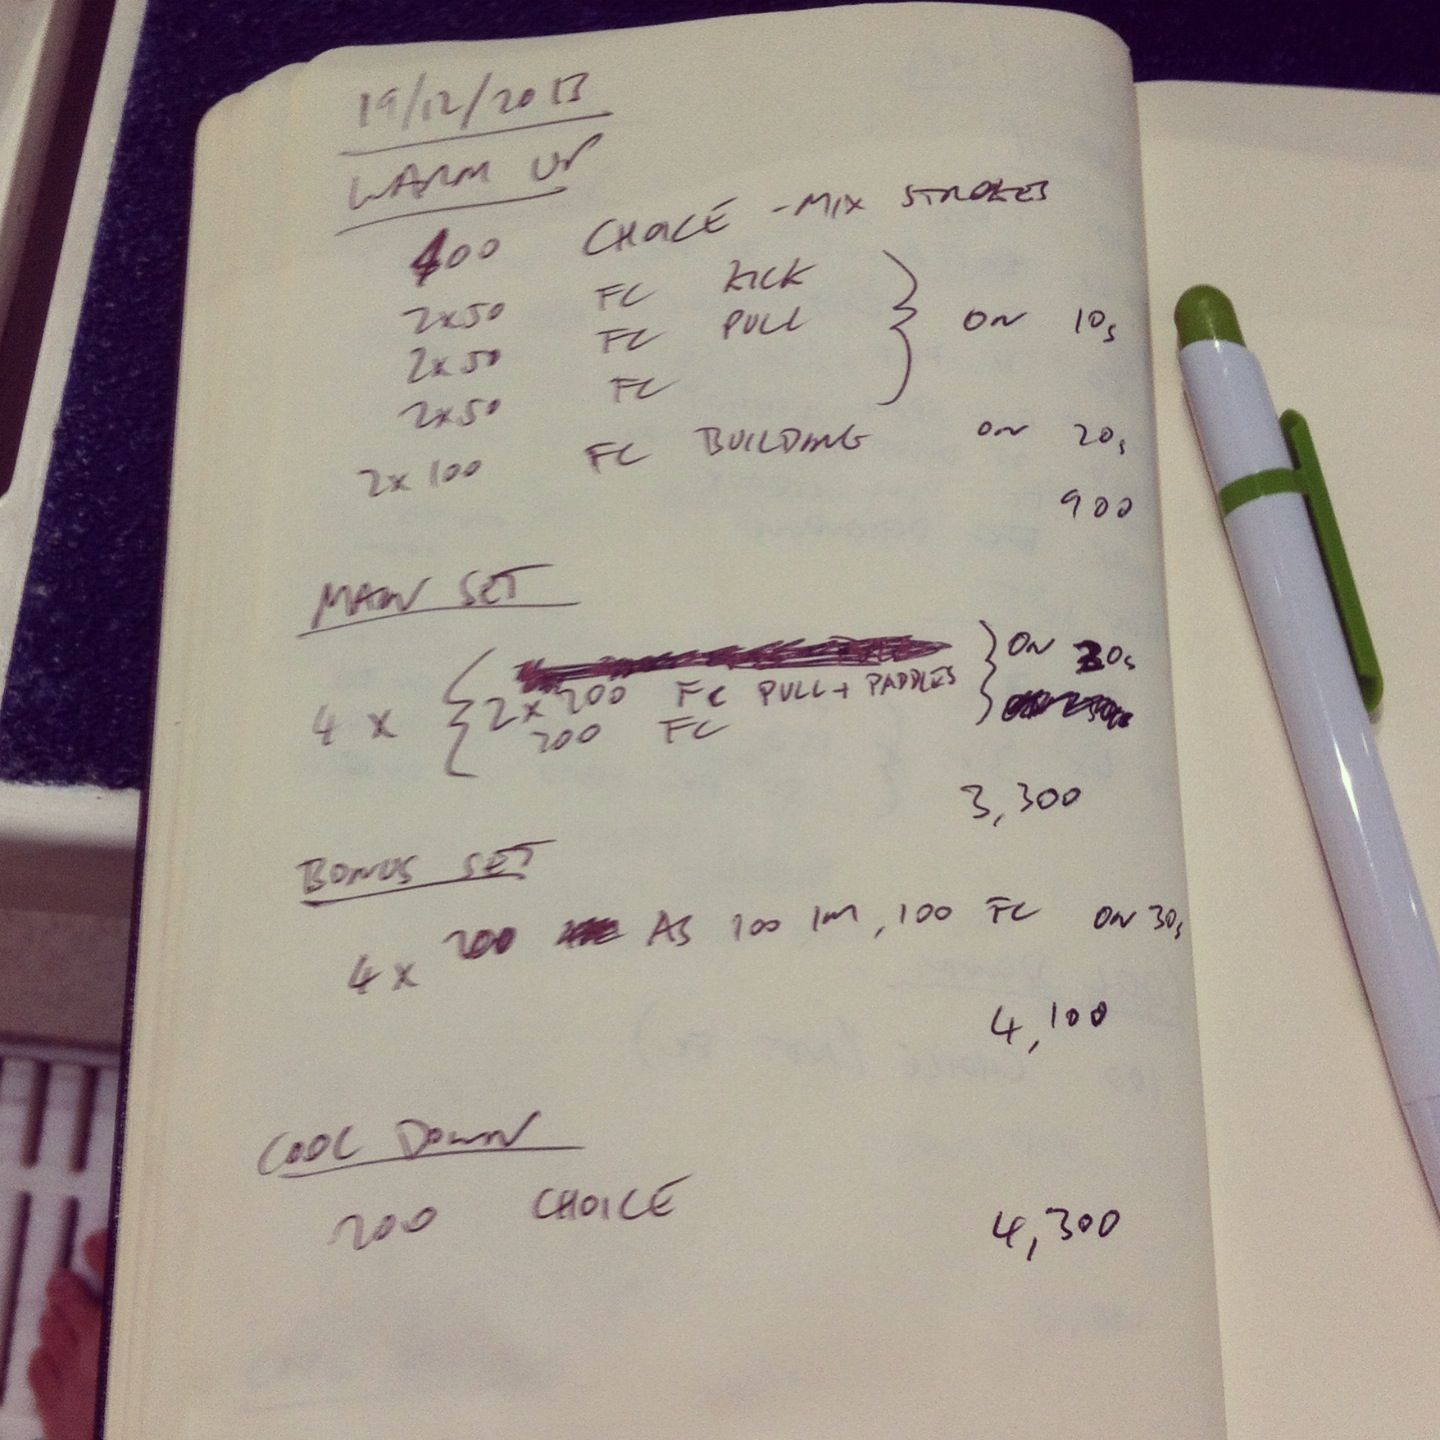 19/12/2013
WARM UP
400 CHOICE - MIX STROKES
2x50 FC KICK
2x50 FC PULL } ON 10s
2x50 FC
2x100 FC BUILDING ON 20s
900
MAIN SET
4 x { 2x200 FC PULL + PADDLES } ON 30s
200 FC
3,300
BONUS SET
4 x 200 AS 100 IM, 100 FC ON 30s
4,100
COOL DOWN
200 CHOICE
4,300